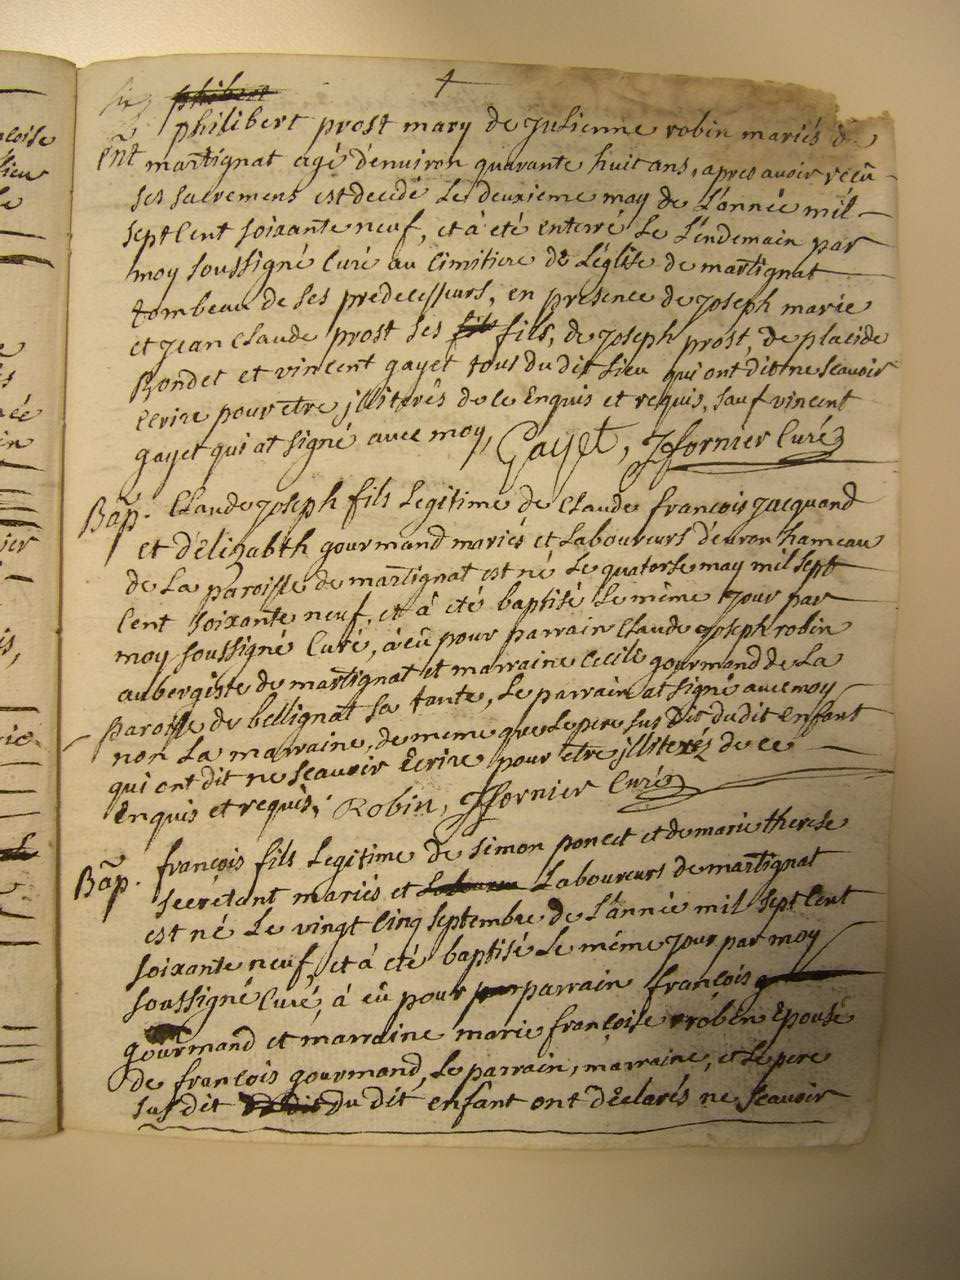 philibert
philibert prost mary de Julienne robin mariés d
Ent martignat agé d'environ quarante huit ans, apres avoir reçû
ses sacremens est decedé le deuxieme may de l'année mil
sept cent soixante neuf, et à été enterré le l'endemain par
moy soussigné curé au cimitiere de l'église de martignat
tombeau de ses predecesseurs, en presence de joseph marie
et jean claude prost ses fils fils, de joseph prost, de placide
Bondet et vincent gayet tous du dit lieu qui ont dit ne scavoir
ecrire pour etre jllitérés de ce enquis et requis, sauf vincent
gayet qui at signé avec moy, Gayet, Jffornier Curé
Bap. Claude joseph fils legitime de claude françois jacquand
et d'élizabth gourmand mariés et laboureurs d'evron hameau
de la paroisse de martignat est né le quatorse may mil sept
cent soixante neuf, et à été baptisé le même jour par
moy soussigné curé, à eû pour parrain claude joseph robin
aubergiste de martignat et marraine cecile gourmand de la
paroisse de bellignat sa tante, le parrain at signé avec moy
non la marraine, de meme que le pere sus dit du dit enfant
qui ont dit ne scauoir écrire pour être jlliterés de ce
enquis et requis, Robin, Jffornier Curé
Bap. françois fils legitime de simon poncet et de marie therese
secrétant mariés et Laboureurs de martignat
est né le vingt cinq septembre de l'année mil sept cent
soixante neuf, et à été baptisé le méme jour par moy
soussigné curé, à eû pour parrain françois
gourmand et marraine marie françoise robin épouse
de françois gourmand, le parrain, marraine, et le pere
sus dit du dit enfant ont déclarés ne scauoir